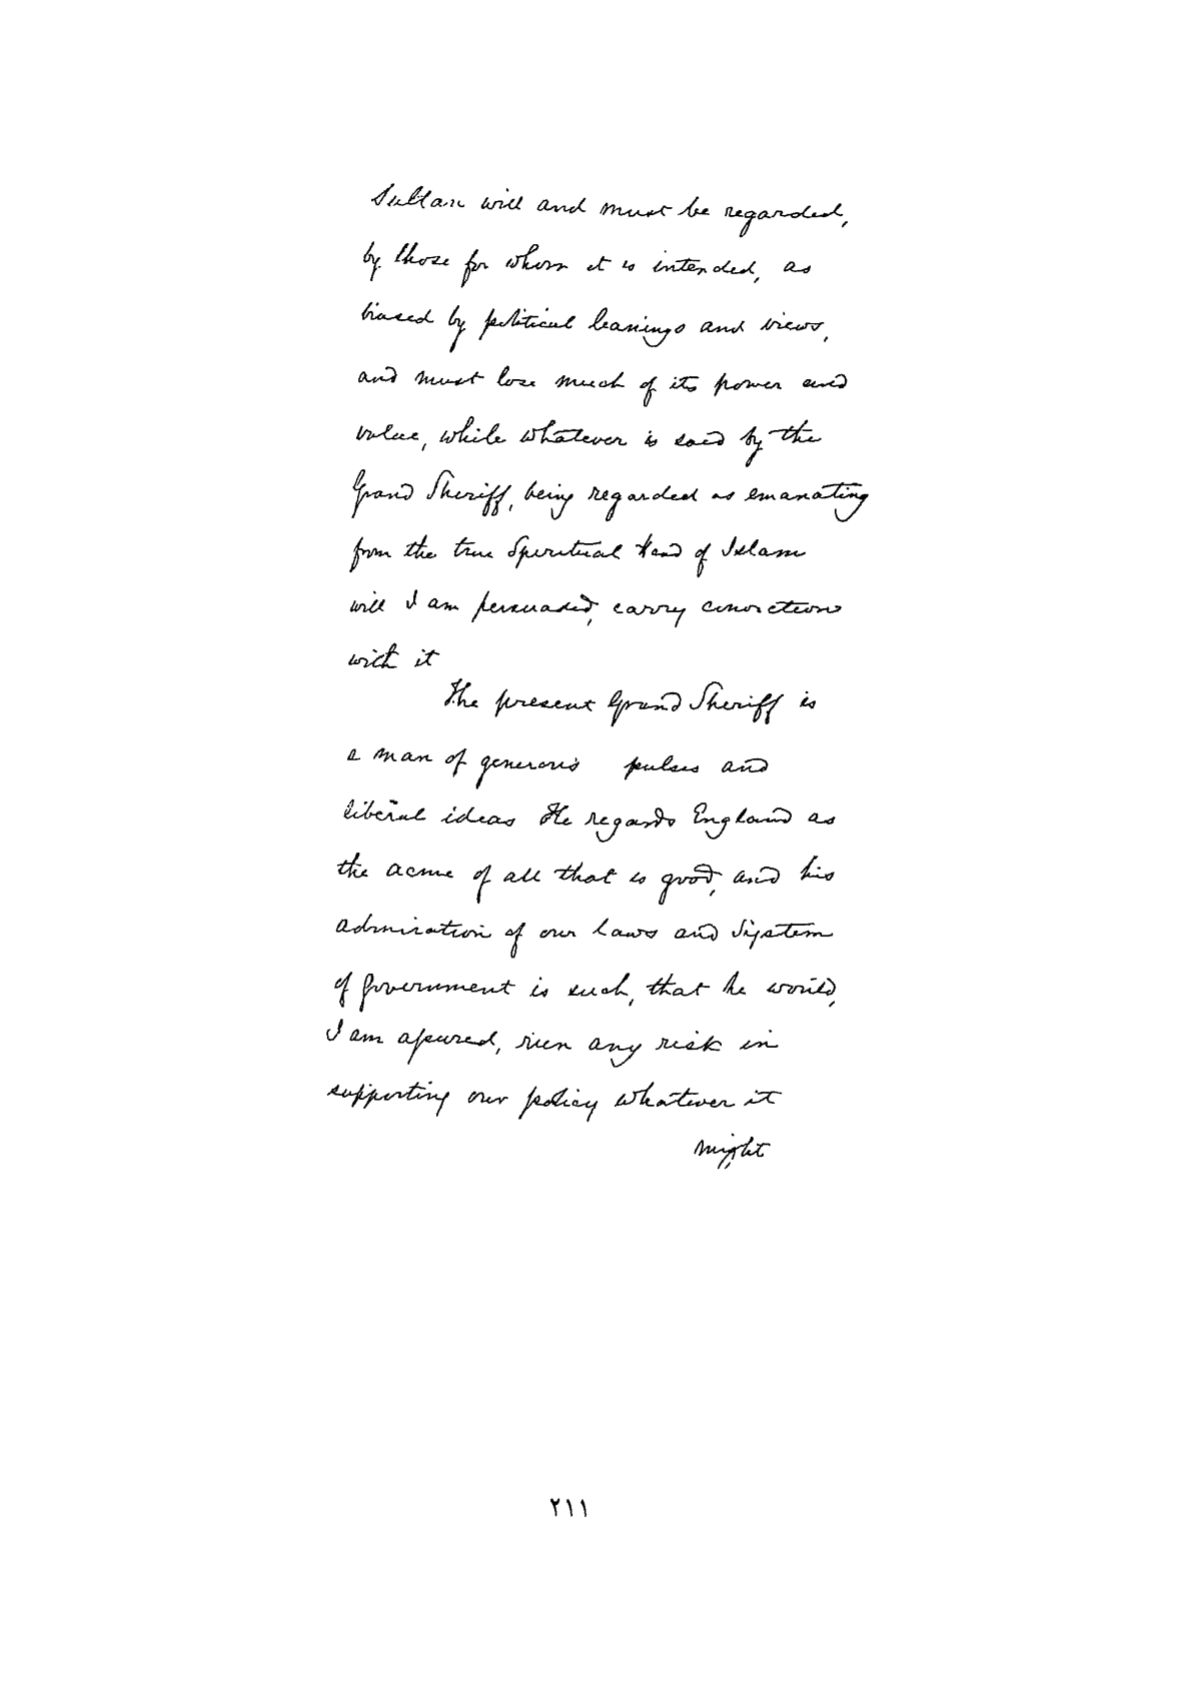 Sultan will and must be regarded,
by those for whom it is intended, as
biased by political leanings and views,
and must lose much of its power and
value, while whatever is said by the
Grand Sheriff, being regarded as emanating
from the true Spiritual Head of Islam
will I am persuaded, carry conviction
with it
The present Grand Sheriff is
a man of generous pulses and
liberal ideas He regards England as
the acme of all that is good, and his
admiration of our Laws and System
of Government is such, that he would,
I am assured, run any risk in
supporting our policy whatever it
might
٢١١